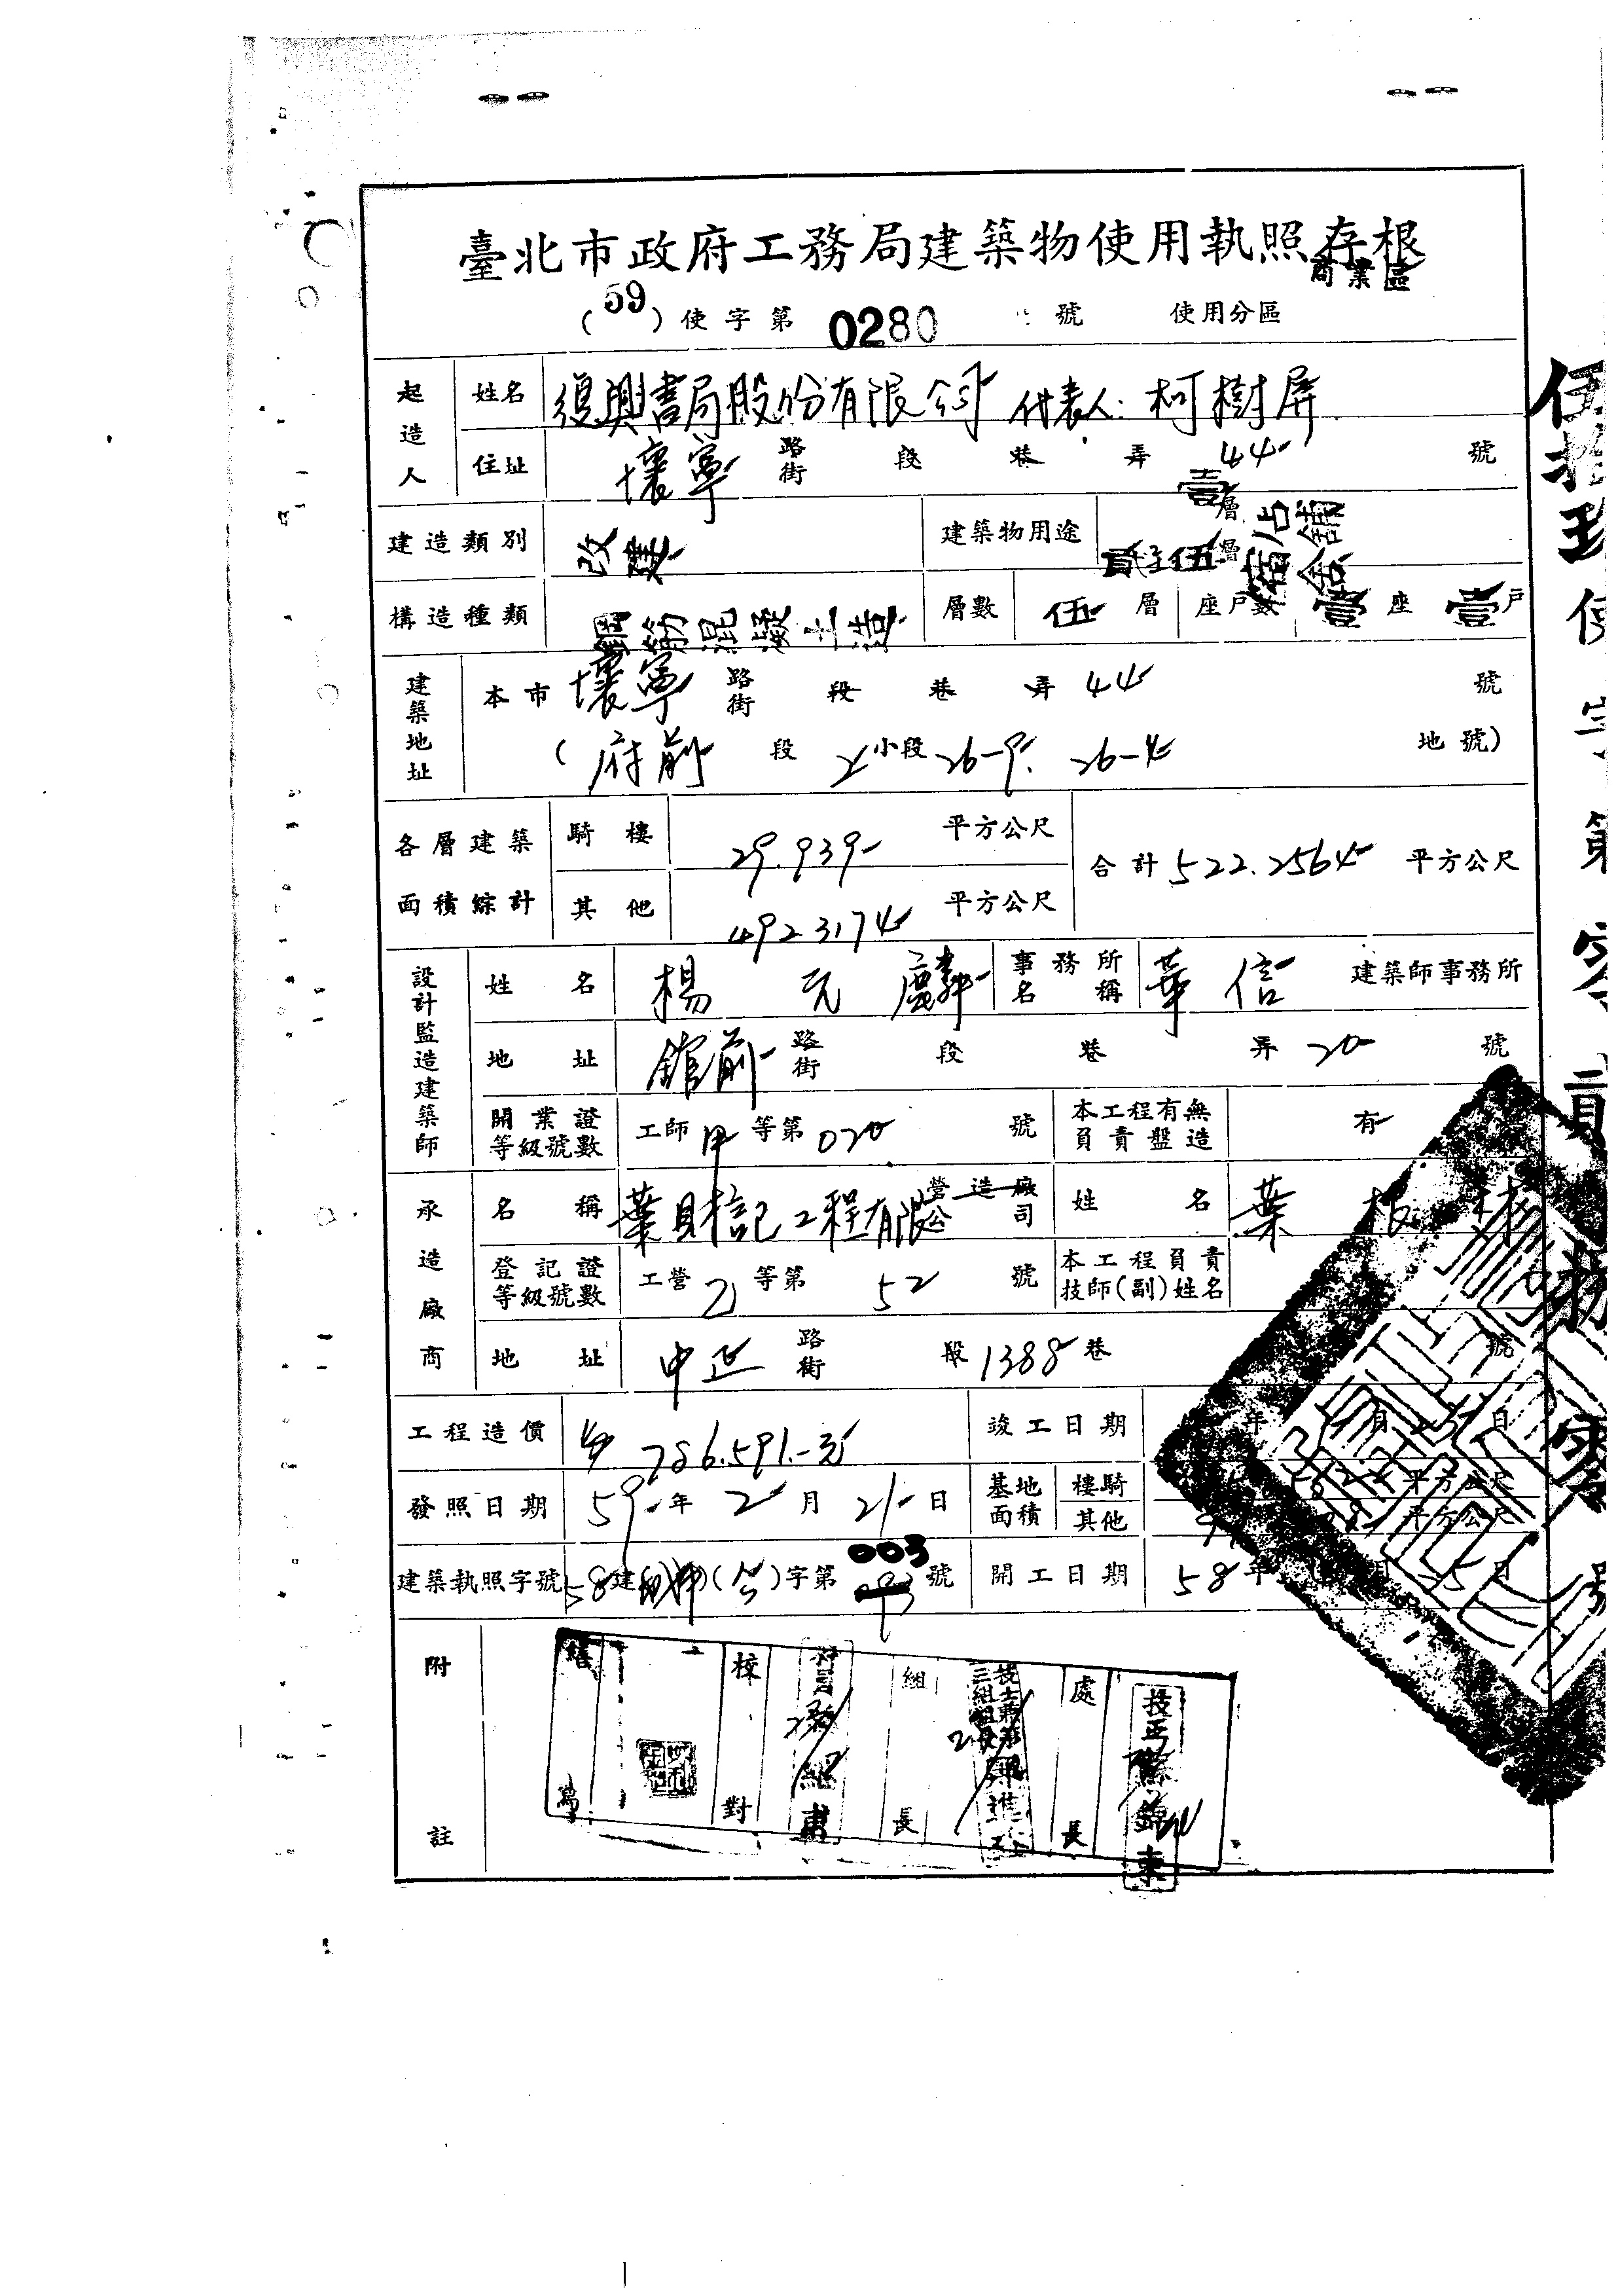 臺北市政府工務局建築物使用執照存根
商業區
(59)使字第 0280 號 使用分區
起造人 姓名 復興書局股份有限公司 代表人:柯樹屏
住址 壞寧 路街 段 巷 弄 44 號
建造類別 改建 建築物用途 壹層 店舖
貳至伍層 宿舍
構造種類 鋼筋混凝土造 層數 伍 層 座戶數 壹 座 壹 戶
建築地址 本市 壞寧 路街 段 巷 弄 44 號
(府前 段 2 小段 26-9. 26-4 地號)
各層建築面積綜計 騎樓 29.939 平方公尺 合計 522.2564 平方公尺
其他 492.3174 平方公尺
設計監造建築師 姓名 楊元麟 事務所名稱 華信 建築師事務所
地址 舘前 路街 段 巷 弄 20 號
開業證等級號數 工師 甲 等第 020 號 本工程有無負責盤造 有
承造廠商 名稱 葉財記工程有限 營造廠公司 姓名 葉
登記證等級號數 工營 乙 等第 52 號 本工程負責技師(副)姓名
地址 中正 路街 段 1388 巷 號
工程造價 786.591.-元 竣工日期 年 月 日
發照日期 59 年 2 月 21 日 基地面積 樓騎 平方公尺
其他 平方公尺
建築執照字號 58 建 字第 003 號 開工日期 58 年 月 日
附註
繕寫 校對 組長 處長
伍拾玖使字第零貳